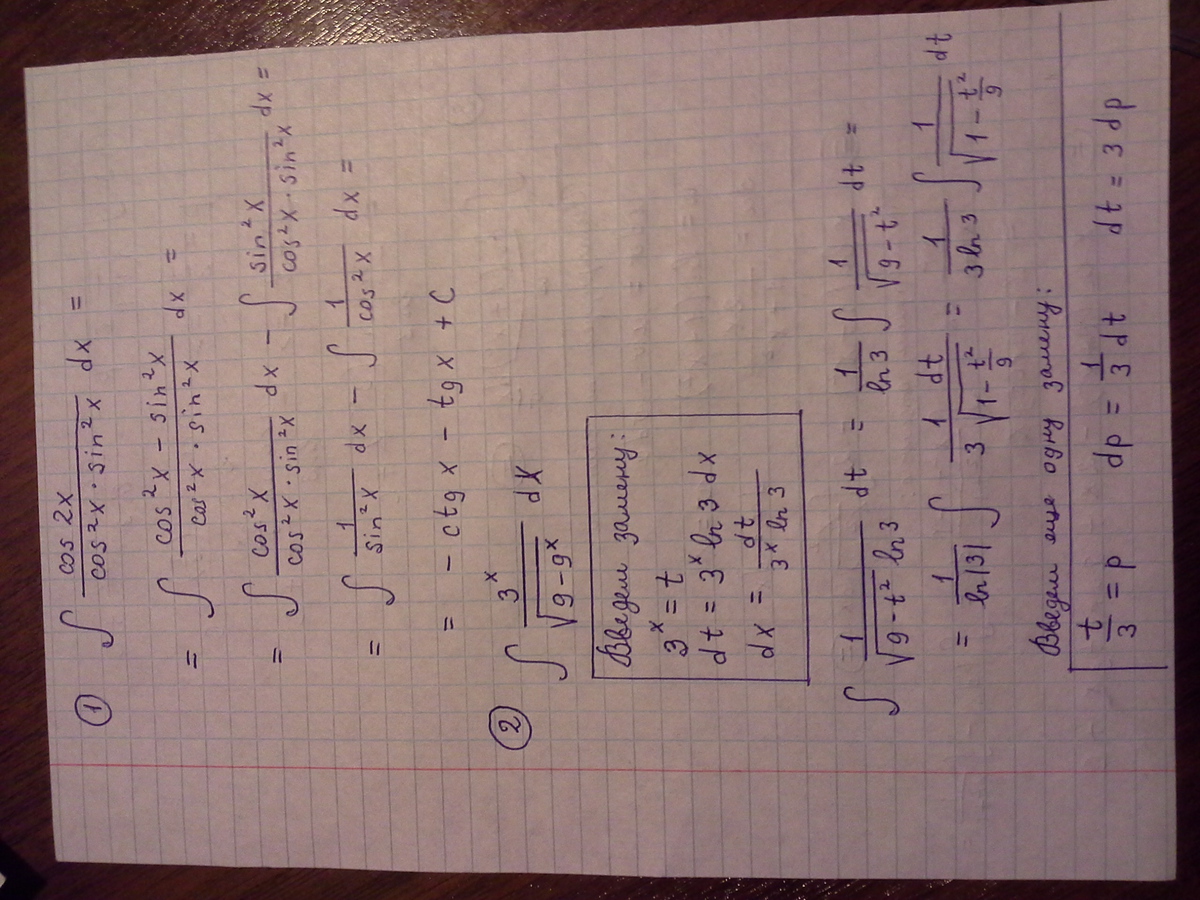 ① ∫ cos 2x / (cos²x · sin²x) dx =
= ∫ (cos²x − sin²x) / (cos²x · sin²x) dx =
= ∫ cos²x / (cos²x · sin²x) dx − ∫ sin²x / (cos²x · sin²x) dx =
= ∫ 1 / sin²x dx − ∫ 1 / cos²x dx =
= − ctg x − tg x + C
② ∫ 3ˣ / √(9 − 9ˣ) dx
Введем замену:
3ˣ = t
dt = 3ˣ ln 3 dx
dx = dt / (3ˣ ln 3)
∫ 1 / (√(9 − t²) ln 3) dt = 1 / ln 3 ∫ 1 / √(9 − t²) dt =
= 1 / ln|3| ∫ 1 dt / (3 √(1 − t²/9)) = 1 / (3 ln 3) ∫ 1 / √(1 − t²/9) dt
Введем еще одну замену:
t/3 = p dp = 1/3 dt dt = 3 dp